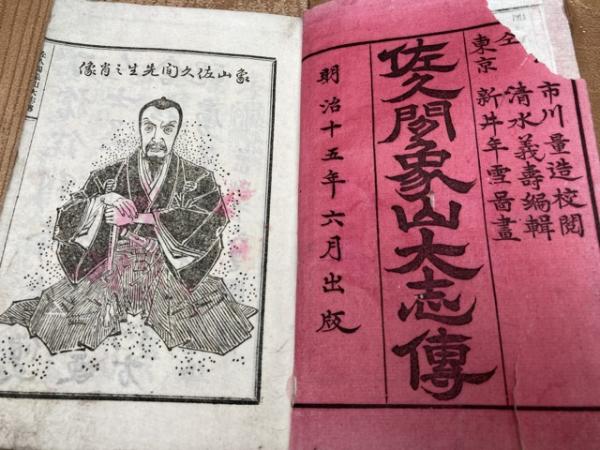 市川量造校閲
清水義壽編輯
東京 新井年雪啚畫
佐久間象山大志傳
明治十五年六月出版
象山佐久間先生之肖像